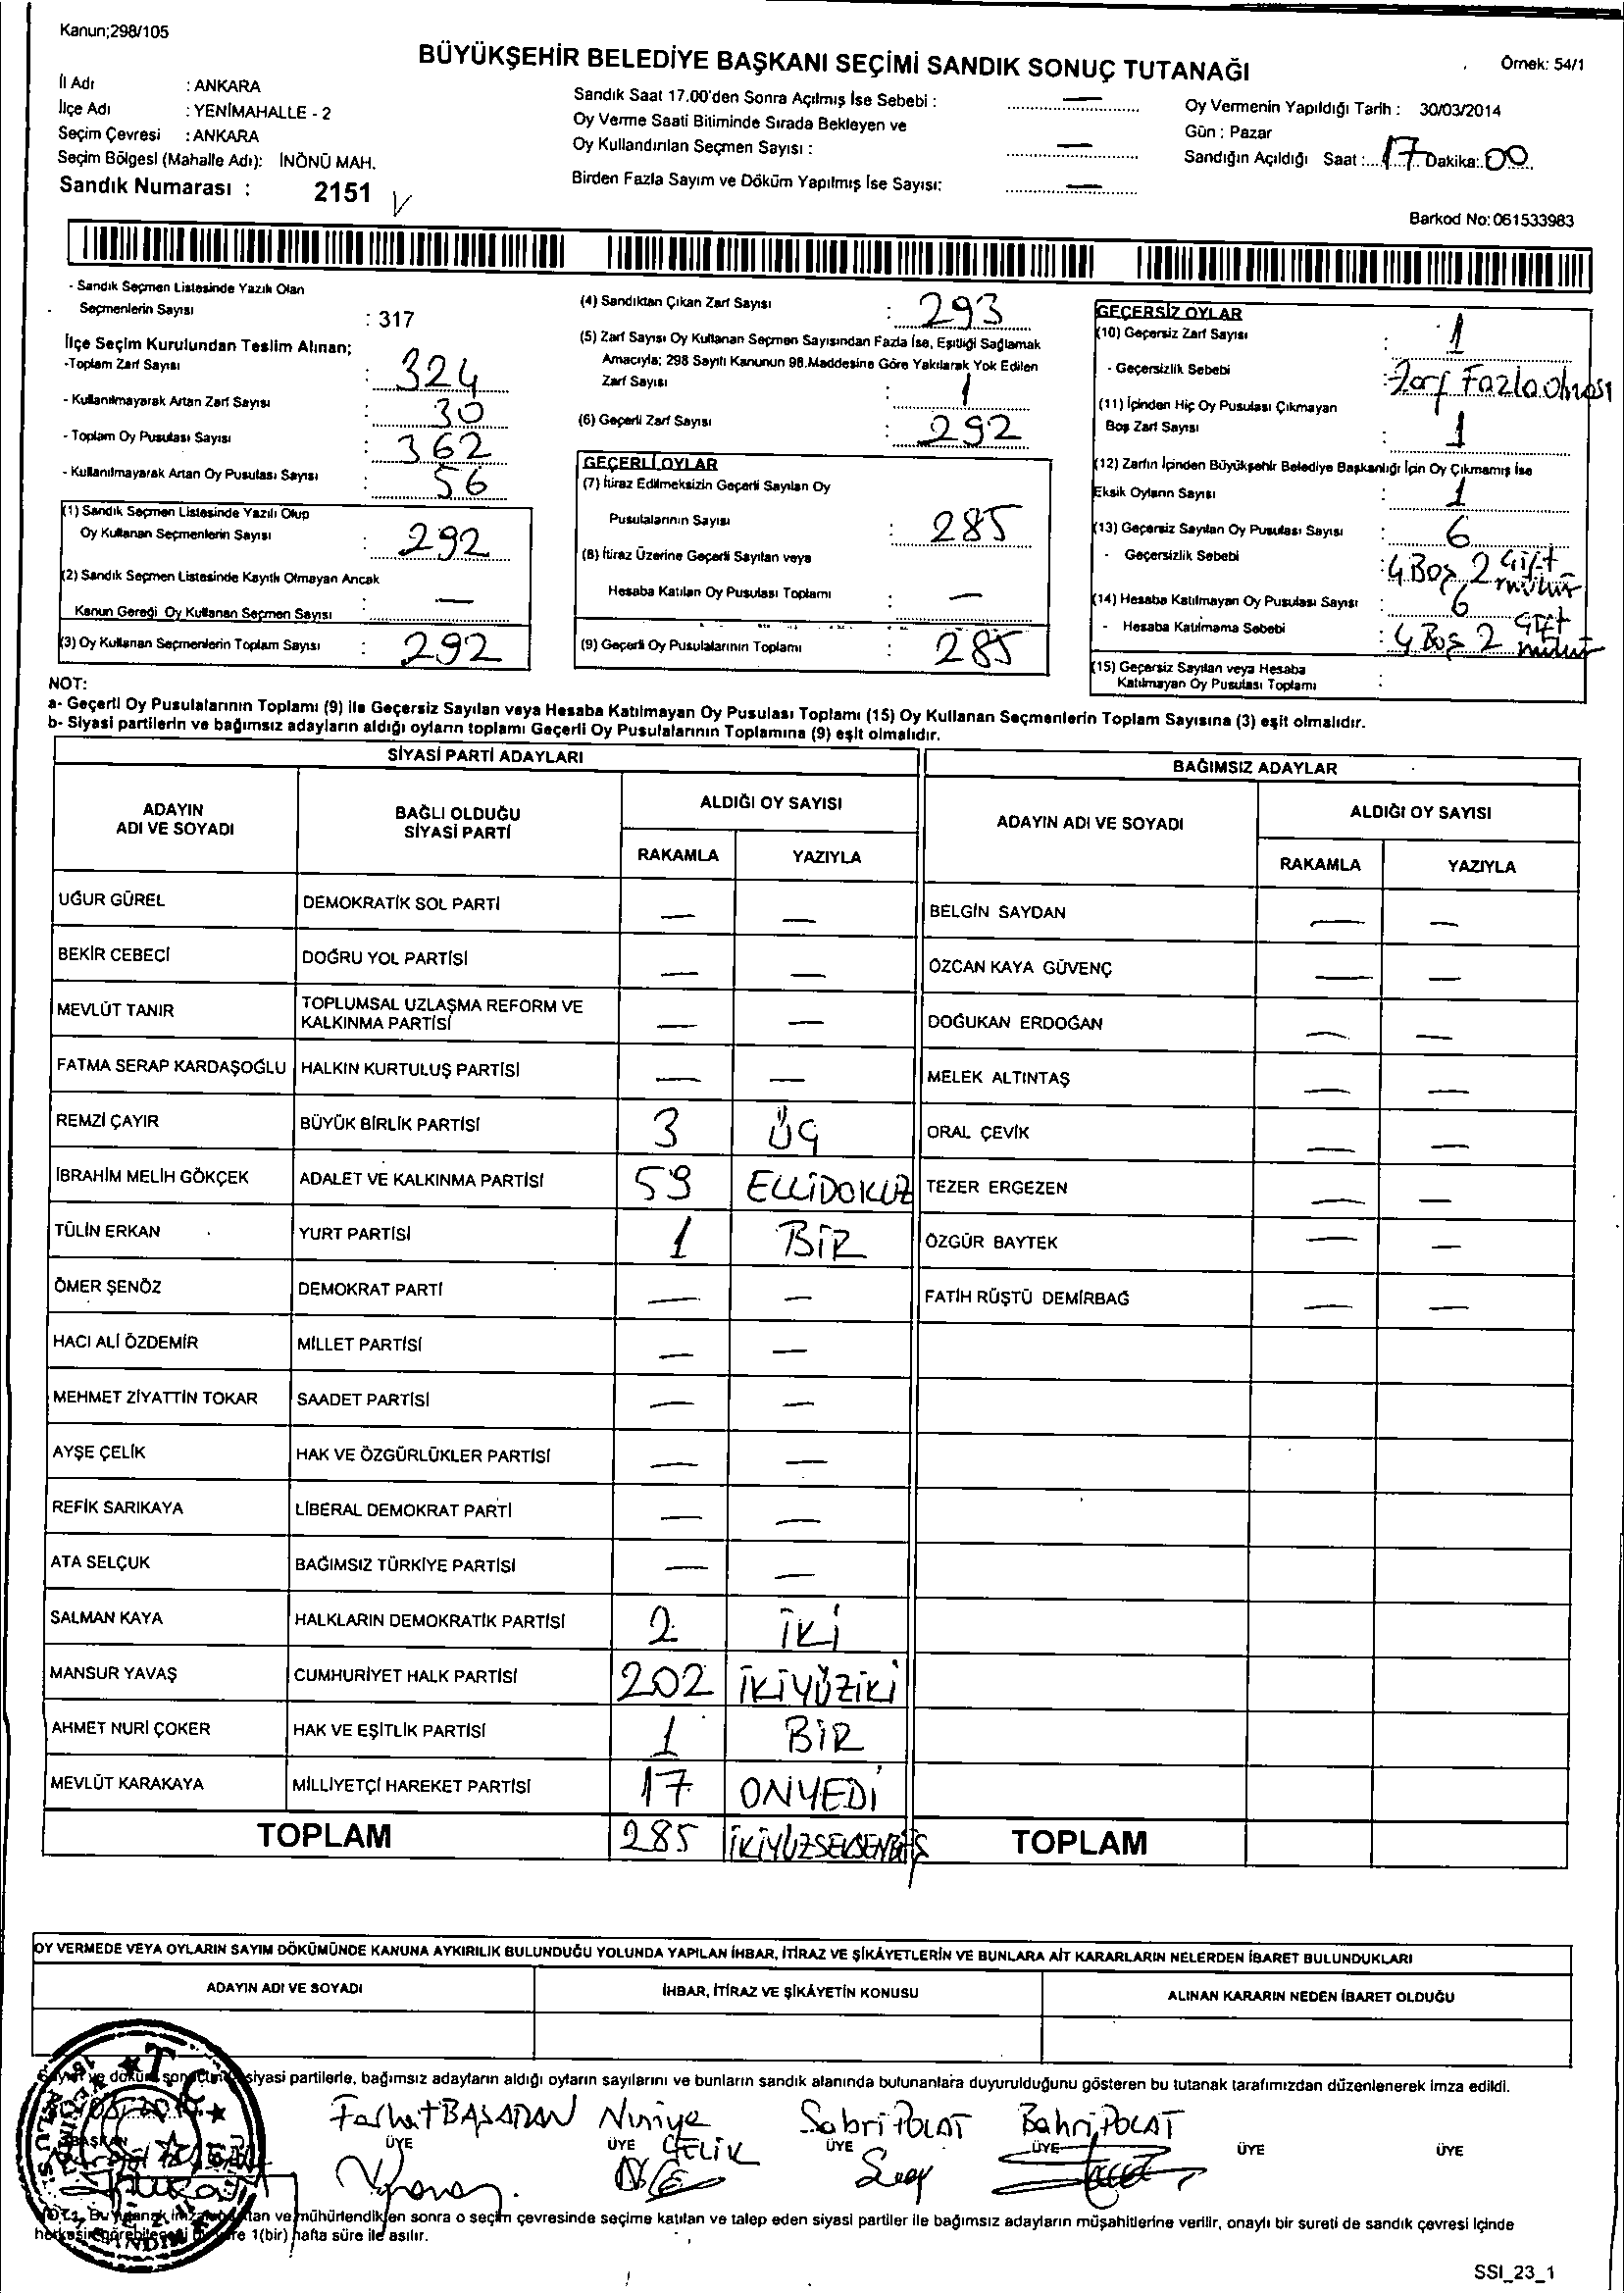 Kanun;298/105
BÜYÜKŞEHİR BELEDİYE BAŞKANI SEÇİMİ SANDIK SONUÇ TUTANAĞI
Örnek: 54/1
İl Adı : ANKARA
İlçe Adı : YENİMAHALLE - 2
Seçim Çevresi : ANKARA
Seçim Bölgesi (Mahalle Adı): İNÖNÜ MAH.
Sandık Numarası : 2151
Sandık Saat 17.00'den Sonra Açılmış İse Sebebi : —
Oy Verme Saati Bitiminde Sırada Bekleyen ve
Oy Kullandırılan Seçmen Sayısı : —
Birden Fazla Sayım ve Döküm Yapılmış İse Sayısı: —
Oy Vermenin Yapıldığı Tarih : 30/03/2014
Gün : Pazar
Sandığın Açıldığı Saat : 17 Dakika: 00
Barkod No: 061533983
- Sandık Seçmen Listesinde Yazılı Olan
Seçmenlerin Sayısı : 317
İlçe Seçim Kurulundan Teslim Alınan;
-Toplam Zarf Sayısı : 324
- Kullanılmayarak Artan Zarf Sayısı : 30
- Toplam Oy Pusulası Sayısı : 362
- Kullanılmayarak Artan Oy Pusulası Sayısı : 56
(1) Sandık Seçmen Listesinde Yazılı Olup
Oy Kullanan Seçmenlerin Sayısı : 292
(2) Sandık Seçmen Listesinde Kayıtlı Olmayan Ancak
Kanun Gereği Oy Kullanan Seçmen Sayısı : —
(3) Oy Kullanan Seçmenlerin Toplam Sayısı : 292
(4) Sandıktan Çıkan Zarf Sayısı : 293
(5) Zarf Sayısı Oy Kullanan Seçmen Sayısından Fazla İse, Eşitliği Sağlamak
Amacıyla; 298 Sayılı Kanunun 98.Maddesine Göre Yakılarak Yok Edilen
Zarf Sayısı : 1
(6) Geçerli Zarf Sayısı : 292
GEÇERLİ OYLAR
(7) İtiraz Edilmeksizin Geçerli Sayılan Oy
Pusulalarının Sayısı : 285
(8) İtiraz Üzerine Geçerli Sayılan veya
Hesaba Katılan Oy Pusulası Toplamı : —
(9) Geçerli Oy Pusulalarının Toplamı : 285
GEÇERSİZ OYLAR
(10) Geçersiz Zarf Sayısı : 1
- Geçersizlik Sebebi : Zarf Fazla olması
(11) İçinden Hiç Oy Pusulası Çıkmayan
Boş Zarf Sayısı : 1
(12) Zarfın İçinden Büyükşehir Belediye Başkanlığı İçin Oy Çıkmamış İse
Eksik Oyların Sayısı : 1
(13) Geçersiz Sayılan Oy Pusulası Sayısı : 6
- Geçersizlik Sebebi : 4 Boş 2 Çift mühür
(14) Hesaba Katılmayan Oy Pusulası Sayısı : 6
- Hesaba Katılmama Sebebi : 4 Boş 2 Çift mühür
(15) Geçersiz Sayılan veya Hesaba
Katılmayan Oy Pusulası Toplamı :
NOT:
a- Geçerli Oy Pusulalarının Toplamı (9) ile Geçersiz Sayılan veya Hesaba Katılmayan Oy Pusulası Toplamı (15) Oy Kullanan Seçmenlerin Toplam Sayısına (3) eşit olmalıdır.
b- Siyasi partilerin ve bağımsız adayların aldığı oyların toplamı Geçerli Oy Pusulalarının Toplamına (9) eşit olmalıdır.
SİYASİ PARTİ ADAYLARI
ADAYIN ADI VE SOYADI
BAĞLI OLDUĞU SİYASİ PARTİ
ALDIĞI OY SAYISI
RAKAMLA YAZIYLA
UĞUR GÜREL DEMOKRATİK SOL PARTİ — —
BEKİR CEBECİ DOĞRU YOL PARTİSİ — —
MEVLÜT TANIR TOPLUMSAL UZLAŞMA REFORM VE KALKINMA PARTİSİ — —
FATMA SERAP KARDAŞOĞLU HALKIN KURTULUŞ PARTİSİ — —
REMZİ ÇAYIR BÜYÜK BİRLİK PARTİSİ 3 ÜÇ
İBRAHİM MELİH GÖKÇEK ADALET VE KALKINMA PARTİSİ 59 ELLİDOKUZ
TÜLİN ERKAN YURT PARTİSİ 1 BİR
ÖMER ŞENÖZ DEMOKRAT PARTİ — —
HACI ALİ ÖZDEMİR MİLLET PARTİSİ — —
MEHMET ZİYATTİN TOKAR SAADET PARTİSİ — —
AYŞE ÇELİK HAK VE ÖZGÜRLÜKLER PARTİSİ — —
REFİK SARIKAYA LİBERAL DEMOKRAT PARTİ — —
ATA SELÇUK BAĞIMSIZ TÜRKİYE PARTİSİ — —
SALMAN KAYA HALKLARIN DEMOKRATİK PARTİSİ 2 İKİ
MANSUR YAVAŞ CUMHURİYET HALK PARTİSİ 202 İKİYÜZİKİ
AHMET NURİ ÇOKER HAK VE EŞİTLİK PARTİSİ 1 BİR
MEVLÜT KARAKAYA MİLLİYETÇİ HAREKET PARTİSİ 17 ONYEDİ
TOPLAM 285 İKİYÜZSEKSENBEŞ
BAĞIMSIZ ADAYLAR
ADAYIN ADI VE SOYADI
ALDIĞI OY SAYISI
RAKAMLA YAZIYLA
BELGİN SAYDAN — —
ÖZCAN KAYA GÜVENÇ — —
DOĞUKAN ERDOĞAN — —
MELEK ALTINTAŞ — —
ORAL ÇEVİK — —
TEZER ERGEZEN — —
ÖZGÜR BAYTEK — —
FATİH RÜŞTÜ DEMİRBAĞ — —
TOPLAM
OY VERMEDE VEYA OYLARIN SAYIM DÖKÜMÜNDE KANUNA AYKIRILIK BULUNDUĞU YOLUNDA YAPILAN İHBAR, İTİRAZ VE ŞİKÂYETLERİN VE BUNLARA AİT KARARLARIN NELERDEN İBARET BULUNDUKLARI
ADAYIN ADI VE SOYADI
İHBAR, İTİRAZ VE ŞİKÂYETİN KONUSU
ALINAN KARARIN NEDEN İBARET OLDUĞU
siyasi partilerle, bağımsız adayların aldığı oyların sayılarını ve bunların sandık alanında bulunanlara duyurulduğunu gösteren bu tutanak tarafımızdan düzenlenerek imza edildi.
Ferhat BAŞARAN Nuriye ÇELİK Sabri POLAT Bahri POLAT
BAŞKAN ÜYE ÜYE ÜYE ÜYE ÜYE ÜYE
T.C.
ve mühürlendikten sonra o seçim çevresinde seçime katılan ve talep eden siyasi partiler ile bağımsız adayların müşahitlerine verilir, onaylı bir sureti de sandık çevresi içinde
1(bir) hafta süre ile asılır.
SSI_23_1